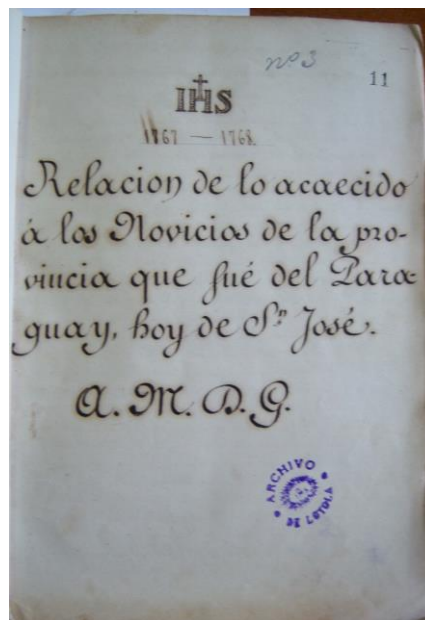 nº 3
11
IHS
1767 — 1768.
Relacion de lo acaecido
á los Novicios de la pro-
vincia que fué del Para=
guay, hoy de Sⁿ José.
A. M. D. G.
ARCHIVO
DE LOYOLA